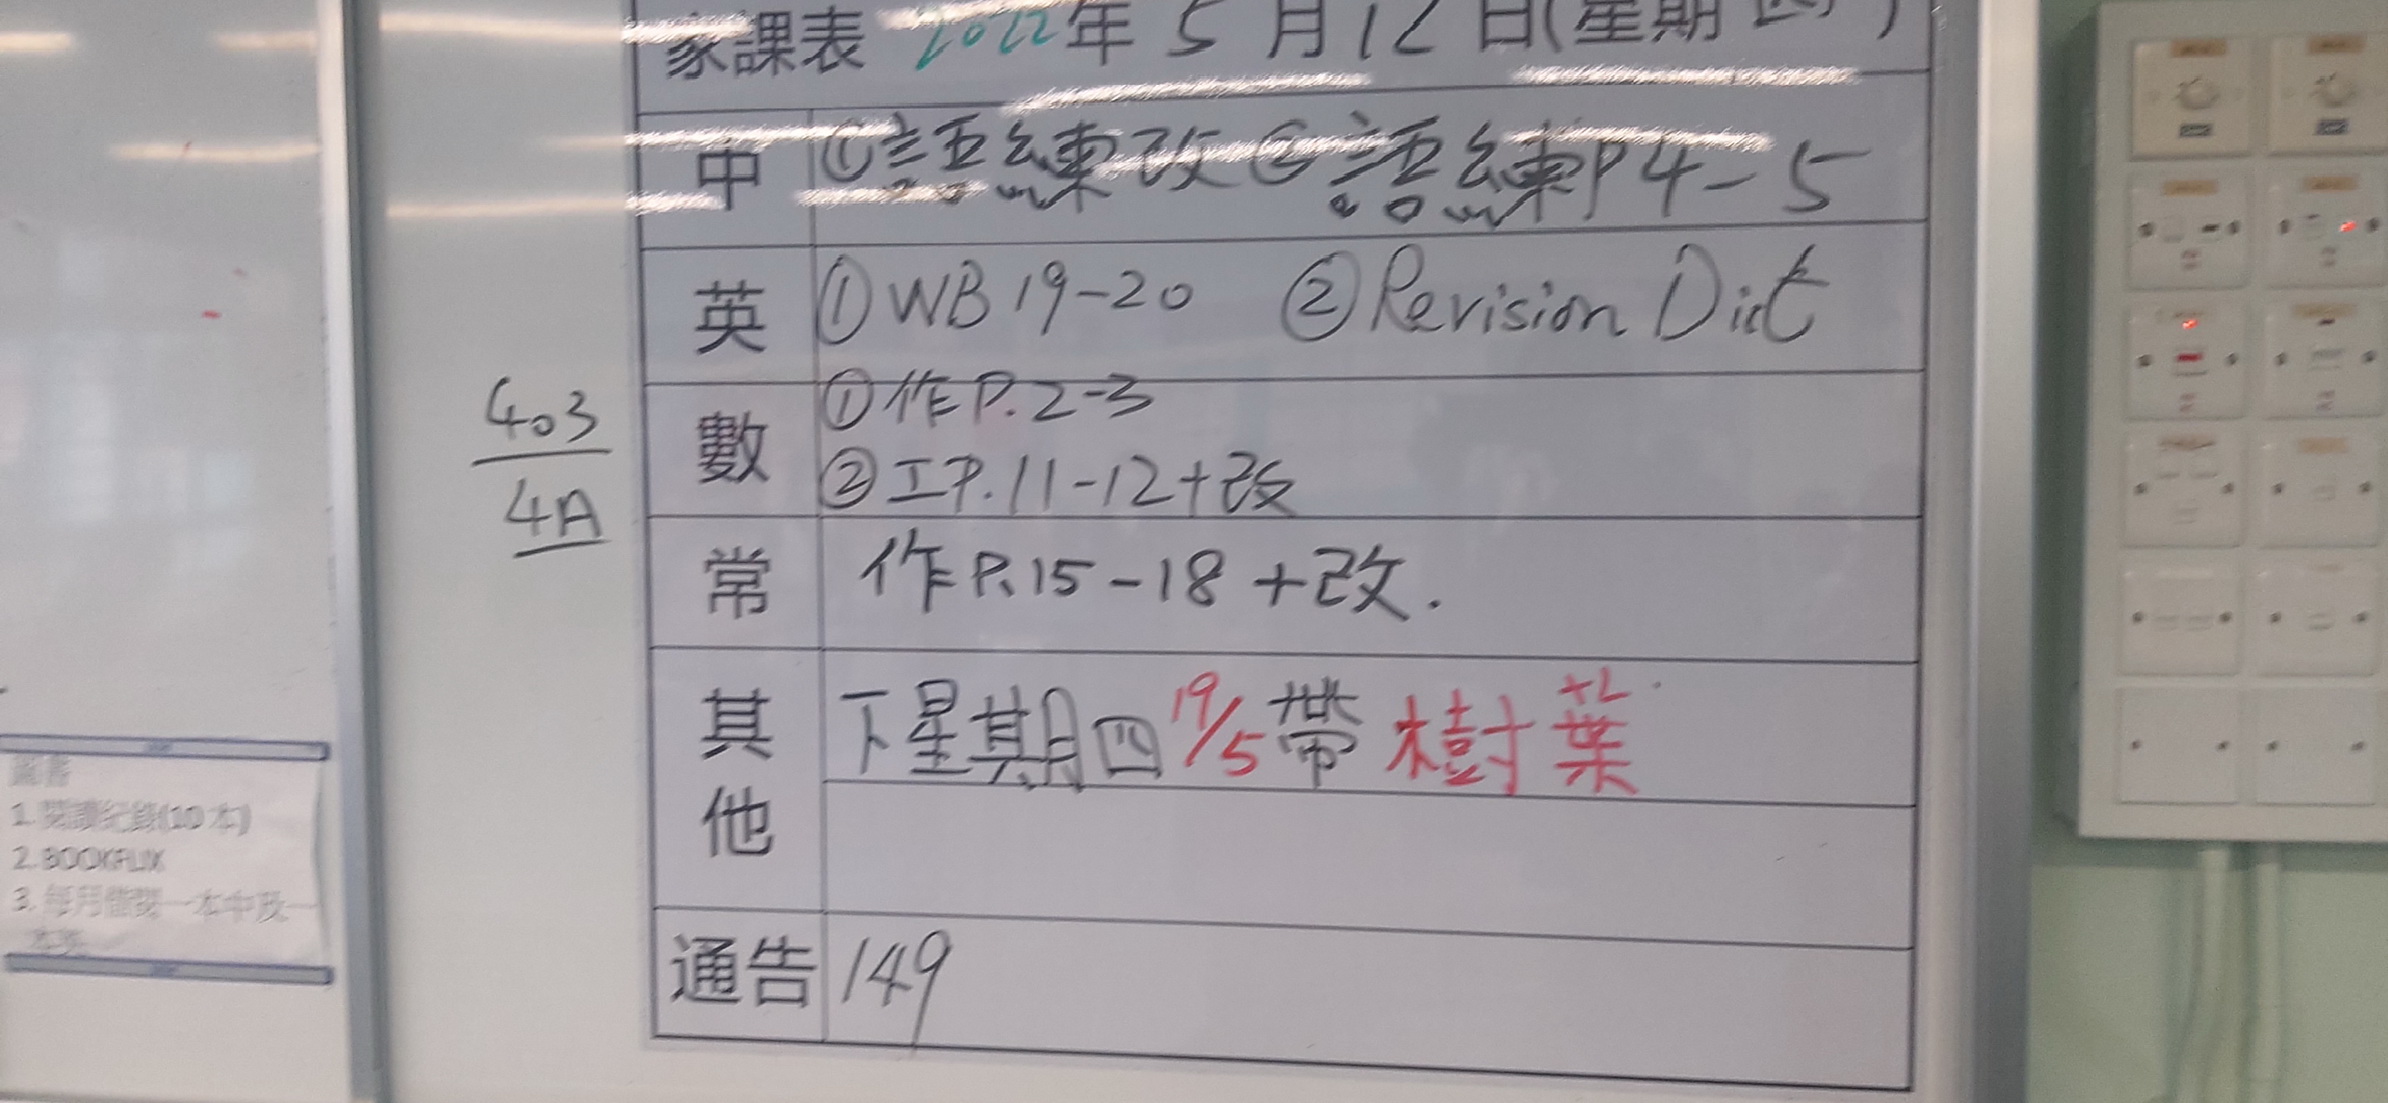 家課表 2022年 5 月 12 日(星期 四)
中 ①語練改 ②語練P4-5
英 ①WB 19-20 ②Revision Dict
數 ①作P.2-3
②工P.11-12+改
常 作P.15-18 +改.
其他 下星期四19/5帶樹葉
通告 149
403
4A
圖書
1. 閱讀紀錄(10本)
2. BOOKFLIX
3. 每月借閱一本中及一
本英